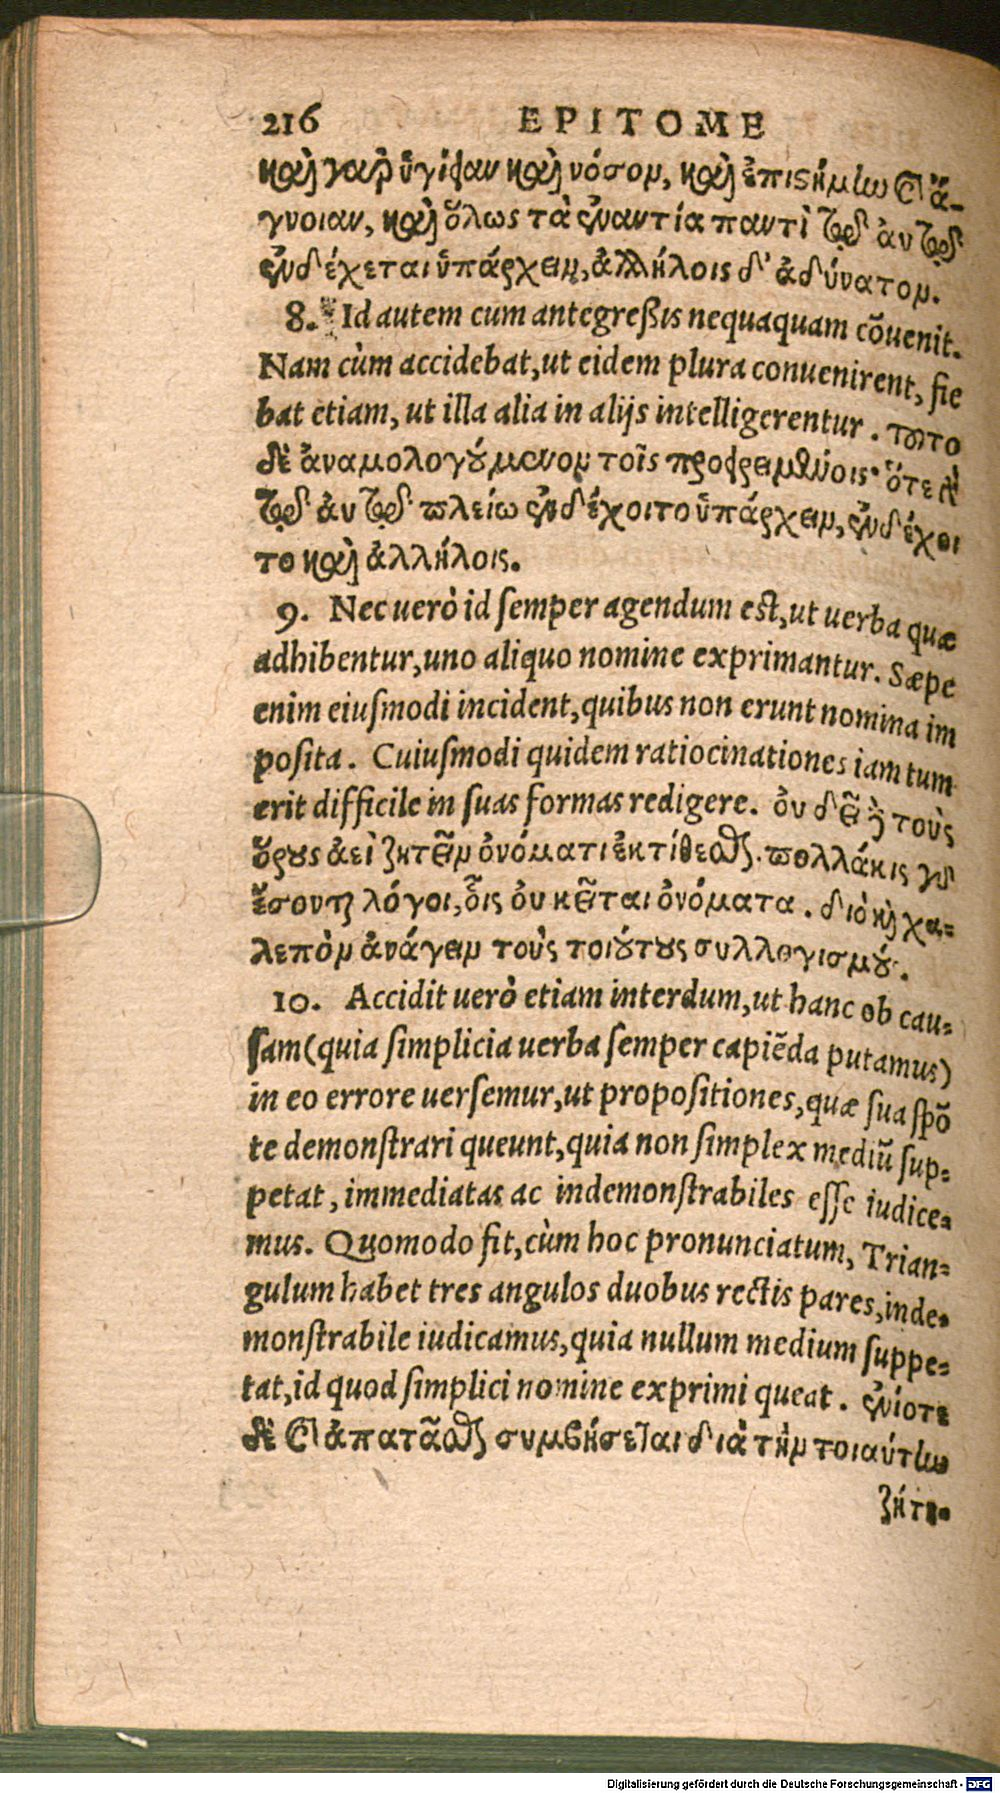 216 EPITOME
καὶ γαρ ὑγίειαν καὶ νόσον, καὶ ἐπιστήμην καὶ ἄ-
γνοιαν, καὶ ὅλως τὰ ἐναντία παντὶ τῷ αὐτῷ
ἐνδέχεται ὑπάρχειν, ἀλλήλοις δ' ἀδύνατον.
8. Id autem cum antegreßis nequaquam cõuenit.
Nam cùm accidebat, ut eidem plura conuenirent, fie
bat etiam, ut illa alia in alijs intelligerentur. τοῦτο
δὲ ἀναμολογούμενον τοῖς προειρημένοις· ὅτε γὰρ
τῷ αὐτῷ πλείω ἐνδέχοιτο ὑπάρχειν, ἐνδέχοι
το καὶ ἀλλήλοις.
9. Nec uerò id ſemper agendum eſt, ut uerba quæ
adhibentur, uno aliquo nomine exprimantur. Sæpe
enim eiuſmodi incident, quibus non erunt nomina im
poſita. Cuiuſmodi quidem ratiocinationes iam tum
erit difficile in ſuas formas redigere. ὀυ δεῖ δὲ τοὺς
ὅρους ἀεὶ ζητεῖν ὀνόματι ἐκτίθεσθαι. πολλάκις γὰρ
ἔσονται λόγοι, οἷς ὀυ κεῖται ὀνόματα. διὸ καὶ χα-
λεπὸν ἀνάγειν τοὺς τοιούτους συλλογισμούς.
10. Accidit uerò etiam interdum, ut hanc ob cau-
ſam (quia ſimplicia uerba ſemper capiẽda putamus)
in eo errore uerſemur, ut propoſitiones, quæ ſua ſpõ
te demonſtrari queunt, quia non ſimplex mediũ ſup-
petat, immediatas ac indemonſtrabiles eſſe iudice-
mus. Quomodo fit, cùm hoc pronunciatum, Trian-
gulum habet tres angulos duobus rectis pares, inde-
monſtrabile iudicamus, quia nullum medium ſuppe-
tat, id quod ſimplici nomine exprimi queat. ἐνίοτε
δὲ καὶ ἀπατᾶσθαι συμβήσεται διὰ τὴν τοιαύτην
ζήτη-
Digitalisierung gefördert durch die Deutsche Forschungsgemeinschaft - DFG